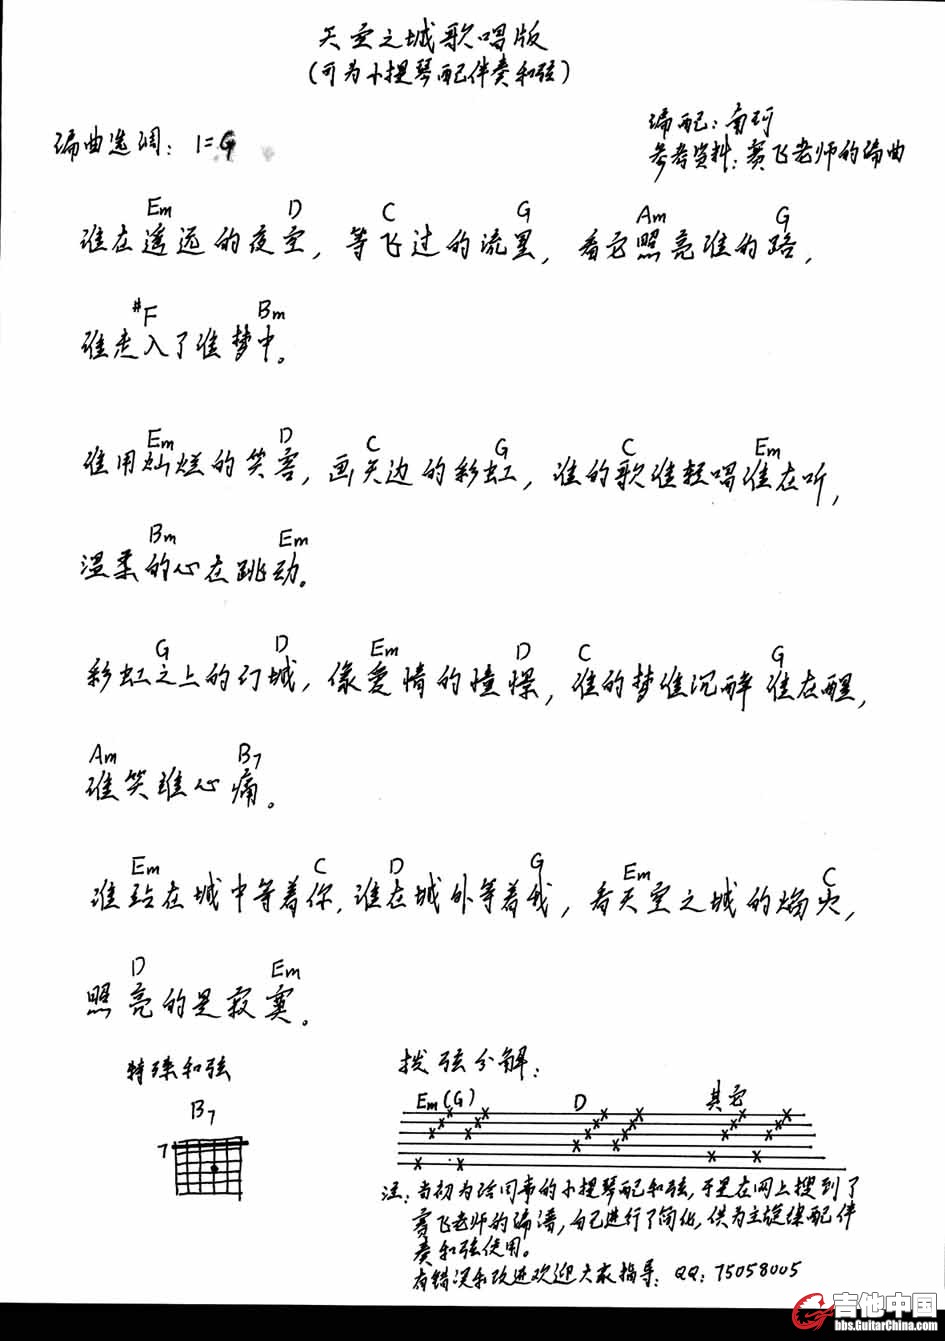 天空之城歌唱版
(可为小提琴配伴奏和弦)
编配：南珂
编曲选调：1=G
参考资料：赛飞老师的编曲
Em D C G Am G
谁在遥远的夜空，等飞过的流星，看它照亮谁的路，
#F Bm
谁走入了谁梦中。
Em D C G C Em
谁用灿烂的笑容，画天边的彩虹，谁的歌谁轻唱谁在听，
Bm Em
温柔的心在跳动。
G D Em D C G
彩虹之上的幻城，像爱情的憧憬，谁的梦谁沉醉谁在醒，
Am B7
谁笑谁心痛。
Em C D G Em C
谁站在城中等着你，谁在城外等着我，看天空之城的焰火，
D Em
照亮的是寂寞。
特殊和弦
拨弦分解：
B7
7
Em(G) D 其它
注：当初为给同事的小提琴配和弦，于是在网上搜到了
赛飞老师的编谱，自己进行了简化，供为主旋律配伴
奏和弦使用。
有错误和改进欢迎大家指导：QQ：75058005
吉他中国
bbs.GuitarChina.com